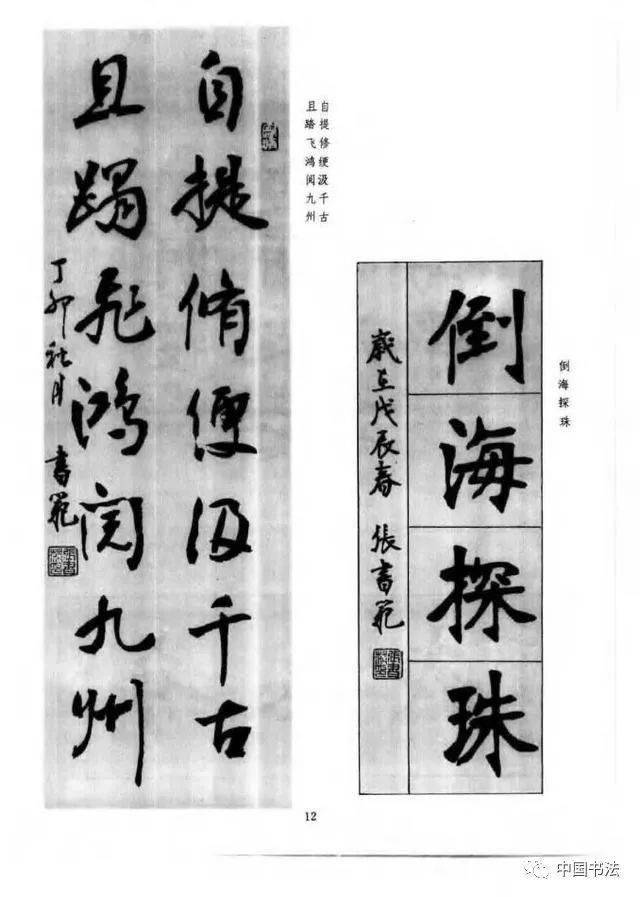 自提脩綆汲千古
且蹋飛鴻閱九州
丁卯秋月 書範
自提修绠汲千古
且踏飞鸿阅九州
倒海探珠
歲在戊辰春 張書範
倒海探珠
12
中国书法